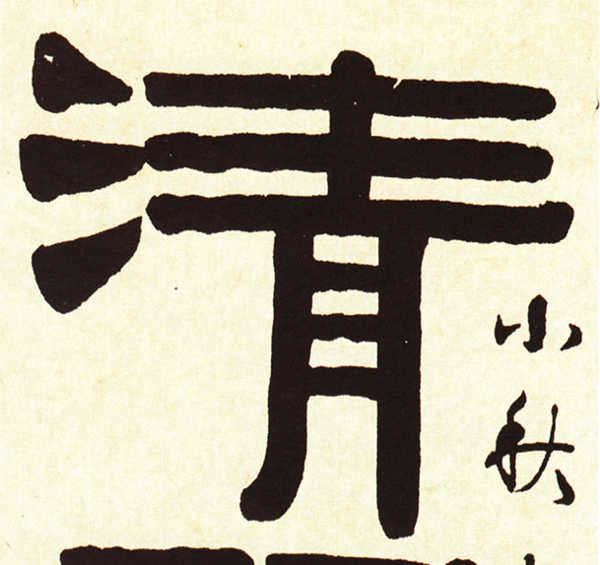 清
小秋